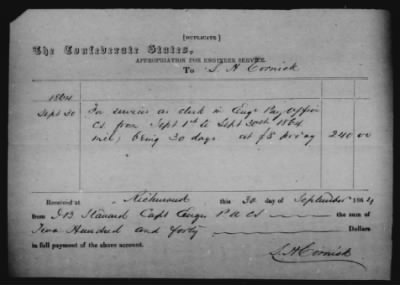 [DUPLICATE]
The Confederate States,
APPROPRIATION FOR ENGINEER SERVICE.
To S. H Cornick
1864
Sept 30 For services as clerk in Engr Pay office
CS from Sept 1st to Sept 30th 1864
incl, being 30 days at $ pr day 240 00
Received at Richmond this 30 day of September 1864
from Capt Engrs P A C S the sum of
Two Hundred and forty Dollars
in full payment of the above account.
S. H Cornick